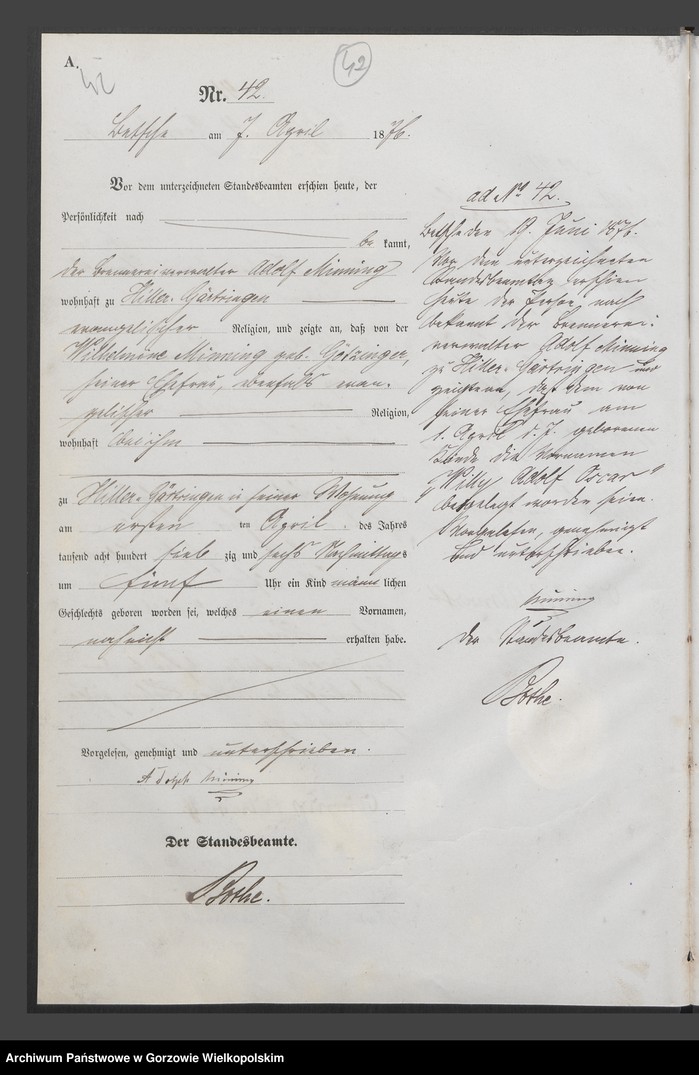 A.
42
42
Nr. 42.
Betsche am 7. April 1876.
Vor dem unterzeichneten Standesbeamten erschien heute, der
Persönlichkeit nach
be kannt,
der Brennereiverwalter Adolf Minning
wohnhaft zu Hiller-Gärtringen
evangelischer Religion, und zeigte an, daß von der
Wilhelmine Minning geb. Götzinger,
seiner Ehefrau, ebenfalls evan-
gelischer Religion,
wohnhaft bei ihm
zu Hiller-Gärtringen in seiner Wohnung
am ersten ten April des Jahres
tausend acht hundert sieb zig und sechs Nachmittags
um fünf Uhr ein Kind männ lichen
Geschlechts geboren worden sei, welches einen Vornamen,
noch nicht erhalten habe.
Vorgelesen, genehmigt und unterschrieben.
Adolph Minning
Der Standesbeamte.
Bothe.
ad No 42.
Betsche den 19. Juni 1876.
Vor dem unterzeichneten
Standesbeamten erschien
heute der Person nach
bekannt der Brennerei-
verwalter Adolf Minning
zu Hiller-Gärtringen und
daß dem von
seiner Ehefrau am
1. April d. J. geborenen
Kinde die Vornamen
"Willy Adolf Oscar"
beigelegt worden seien.
Vorgelesen, genehmigt
und unterschrieben.
Minning
Der Standesbeamte.
Bothe.
Archiwum Państwowe w Gorzowie Wielkopolskim